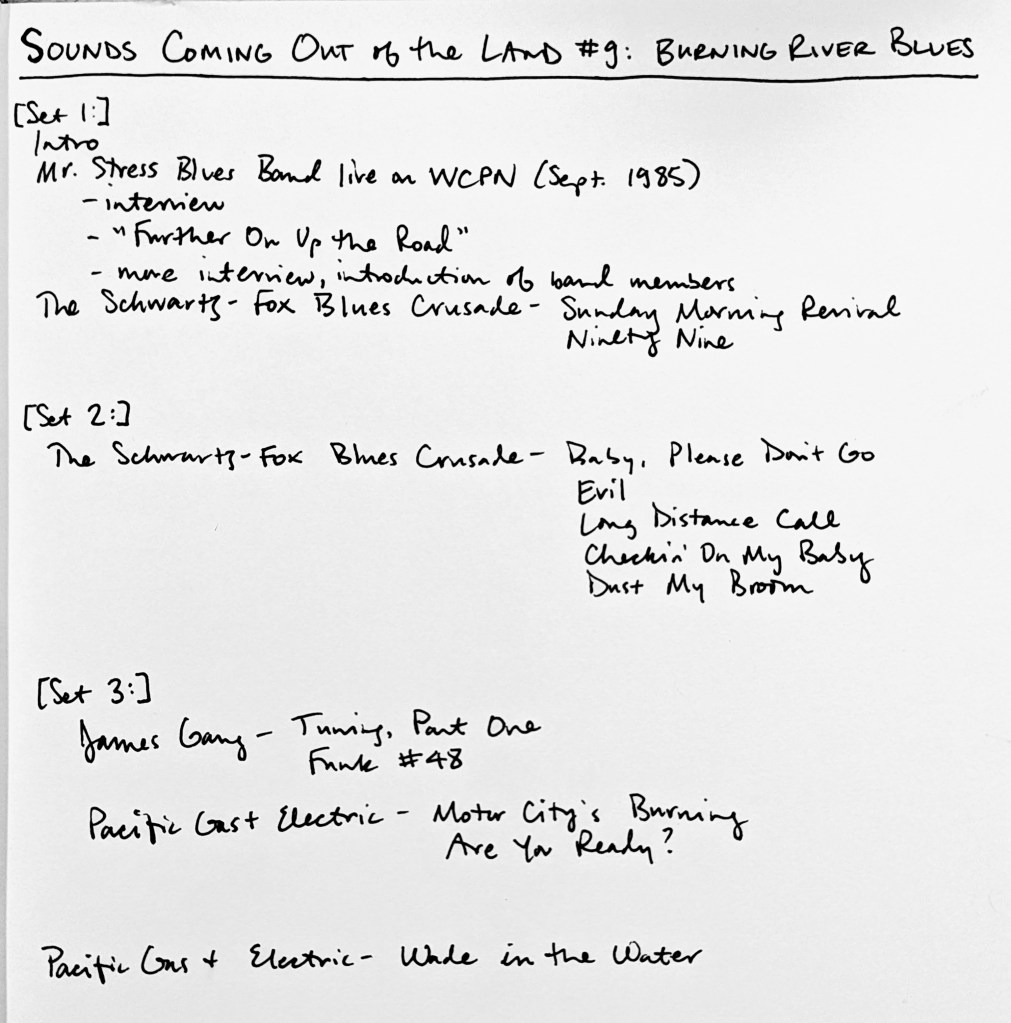 SOUNDS COMING OUT of the LAND #9: BURNING RIVER BLUES
[Set 1:]
Intro
Mr. Stress Blues Band live on WCPN (Sept. 1985)
- interview
- "Further On Up the Road"
- more interview, introduction of band members
The Schwartz-Fox Blues Crusade - Sunday Morning Revival
Ninety Nine
[Set 2:]
The Schwartz-Fox Blues Crusade - Baby, Please Don't Go
Evil
Long Distance Call
Checkin' On My Baby
Dust My Broom
[Set 3:]
James Gang - Tuning, Part One
Funk #48
Pacific Gas + Electric - Motor City's Burning
Are You Ready?
Pacific Gas + Electric - Wade in the Water